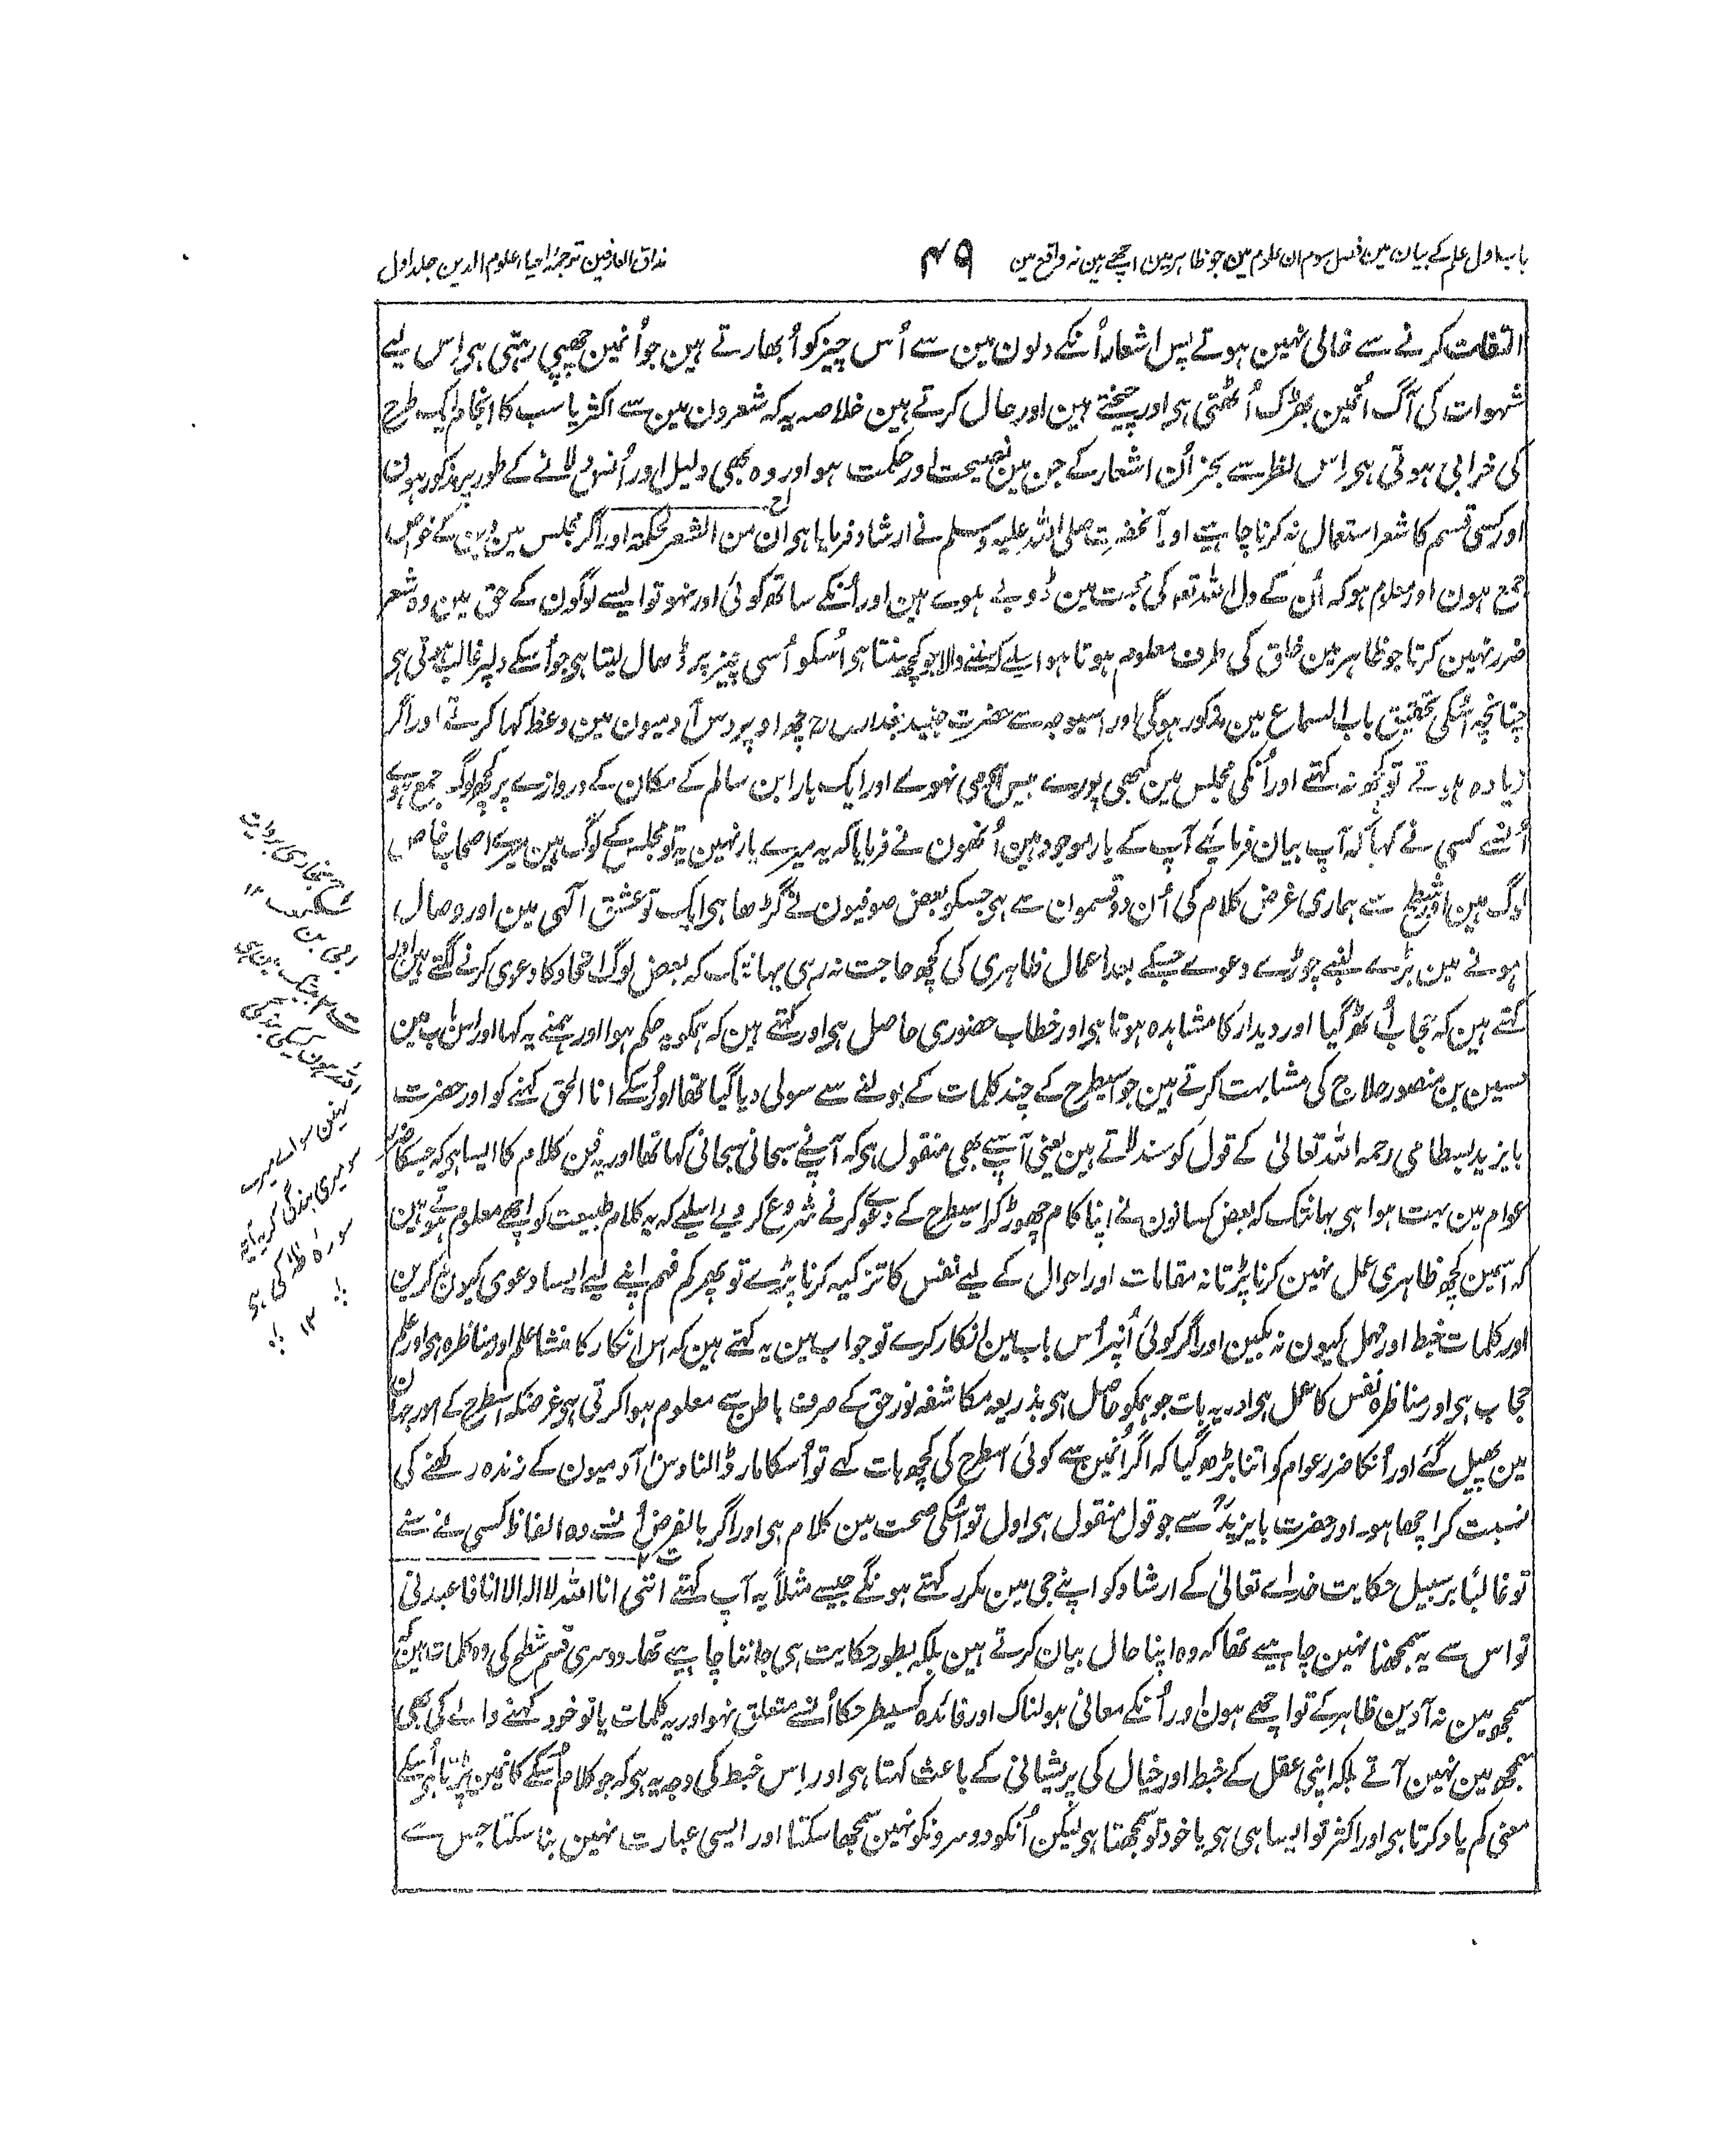 باب اول علم کے بیان مین فصل سوم ان علوم مین جو ظاہر مین اچھے ہین نہ واقع مین
۴۹
مذاق العارفین ترجمۂ احیاء علوم الدین جلد اول
التفات کرنے سے خالی نہین ہوتے پس اشعار اُنکے دلون مین سے اُس چیز کو اُبھارتے ہین جو اُنمین چھپی رہتی ہی اِس لیے
شہوات کی آگ اُنمین بھڑک اُٹھتی ہی اور چیختے ہین اور حال کرتے ہین خلاصہ یہ کہ شعرون مین سے اکثر یا سب کا انجام ایک طرح
کی خرابی ہوتی ہی اِس نظر سے بجز اُن اشعار کے جن مین نصیحت اور حکمت ہو اور وہ بھی دلیل اور اُنس دلانے کے طور پر مذکور ہون
اور کسی قسم کا شعر استعمال نہ کرنا چاہیے اور آنحضرت صلی اللہ علیہ وسلم نے ارشاد فرمایا ہی ان من الشعر لحکمۃ اور اگر مجلس مین دین کے خواص
جمع ہون اور معلوم ہو کہ اُن کے دل اللہ تعہ کی محبت مین ڈوبے ہوے ہین اور اُنکے ساتھ کوئی اور نہو تو ایسے لوگون کے حق مین وہ شعر
ضرر نہین کرتا جو ظاہر مین خلق کی طرف معلوم ہوتا ہو اسلیے کہ سننے والا جو کچھ سنتا ہی اُسکو اُسی چیز پر ڈھال لیتا ہی جو اُسکے دلپر غالب ہوتی ہی
چنانچہ اسکی تحقیق باب السماع مین مذکور ہوگی اور اسیوجہ سے حضرت جنید بغدادی رح کچھ اوپر دس آدمیون مین وعظ کہا کرتے اور اگر
زیادہ ہوتے تو کچھ نہ کہتے اور اُنکی مجلس مین کبھی پورے بیس آدمی نہوے اور ایک بار ابن سالم کے مکان کے دروازے پر کچھ لوگ جمع ہوے
اُنسے کسی نے کہا کہ آپ بیان فرمائیے آپ کے یار موجود ہین اُنھون نے فرمایا کہ یہ میرے یار نہین یہ تو مجلس کے لوگ ہین میرے اصحاب خاص
لوگ ہین اور شطح سے ہماری غرض کلام کی اُن دو قسمون سے ہی جسکو بعض صوفیون نے گڑھا ہی ایک تو عشق الٰہی مین اور وصال
ہونے مین بڑے لنبے چوڑے دعوے جسکے بعد اعمال ظاہری کی کچھ حاجت نہ رہی یہانتک کہ بعض لوگ اتحاد کا دعوی کرنے لگتے ہین اور
کہتے ہین کہ حجاب اُٹھ گیا اور دیدار کا مشاہدہ ہوتا ہی اور خطاب حضوری حاصل ہی اور کہتے ہین کہ ہمکو یہ حکم ہوا اور ہمنے یہ کہا اور اس باب مین
حسین بن منصور حلاج کی مشابہت کرتے ہین جو اسیطرح کے چند کلمات کے بولنے سے سولی دیا گیا تھا اور اُسکے انا الحق کہنے کو اور حضرت
بایزید بسطامی رحمہ اللہ تعالیٰ کے قول کو سند لاتے ہین یعنی آپسے بھی منقول ہی کہ آپنے سبحانی سبحانی کہا تھا اور یہ فن کلام کا ایسا ہی کہ جسکا ضرر
عوام مین بہت ہوا ہی یہانتک کہ بعض کسانون نے اپنا کام چھوڑ کر اسیطرح کے دعوے کرنے شروع کر دیے اسلیے کہ یہ کلام طبیعت کو اچھے معلوم ہوتے ہین
کہ اسمین کچھ ظاہری عمل نہین کرنا پڑتا نہ مقامات اور احوال کے لیے نفس کا تزکیہ کرنا پڑے تو پھر کم فہم اپنے لیے ایسا دعوی کیون نہ کرین
اور کلمات خبط اور مہمل کیون نہ بکین اور اگر کوئی اُنپر اُس باب مین انکار کرے تو جواب مین یہ کہتے ہین کہ اس انکار کا منشا علم اور مناظرہ ہی اور علم
حجاب ہی اور مناظرہ نفس کا عمل ہی اور یہ بات جو ہمکو حاصل ہی بذریعہ مکاشفہ نور حق کے صرف باطن سے معلوم ہوا کرتی ہی غرضکہ اسطرح کے امور جہان
مین پھیل گئے اور اُنکا ضرر عوام کو اتنا بڑھ گیا کہ اگر اُنمین سے کوئی اسطرح کی کچھ بات کہے تو اُسکا مار ڈالنا دس آدمیون کے زندہ رکھنے کی
نسبت کر اچھا ہو۔ اور حضرت بایزیدؒ سے جو قول منقول ہی اول تو اُسکی صحت مین کلام ہی اور اگر بالفرض اُنسے وہ الفاظ کسی نے سنے
تو غالبًا بر سبیل حکایت خداے تعالیٰ کے ارشاد کو اپنے جی مین مکرر کہتے ہونگے جیسے مثلاً یہ آپ کہتے اننی انا اللہ لا الہ الا انا فاعبدنی
تو اس سے یہ سمجھنا نہین چاہیے تھا کہ وہ اپنا حال بیان کرتے ہین بلکہ بطور حکایت ہی جاننا چاہیے تھا۔ دوسری قسم شطح کی وہ کلمات ہین کہ
سمجھ مین نہ آدین ظاہر کے تو اچھے ہون اور اُنکے معانی ہولناک اور فائدہ کسیطرحکا اُنسے متعلق نہو اور یہ کلمات یا تو خود کہنے والے کی بھی
سمجھ مین نہین آتے بلکہ اپنی عقل کے خبط اور خیال کی پریشانی کے باعث کہتا ہی اور اِس خبط کی وجہ یہ ہی کہ جو کلام اُسکے کانمین پڑتا ہی اُسکے
معنی کم یاد کرتا ہی اور اکثر تو ایسا ہی ہی یا خود تو سمجھتا ہی لیکن اُنکو دوسرونکو نہین سمجھا سکتا اور ایسی عبارت نہین بنا سکتا جس سے
بخاری بروایت
نہین سواے میرے
سو میری بندگی کر یہ آیۃ
سورۂ طٰہٰ کی ہی
۱۲